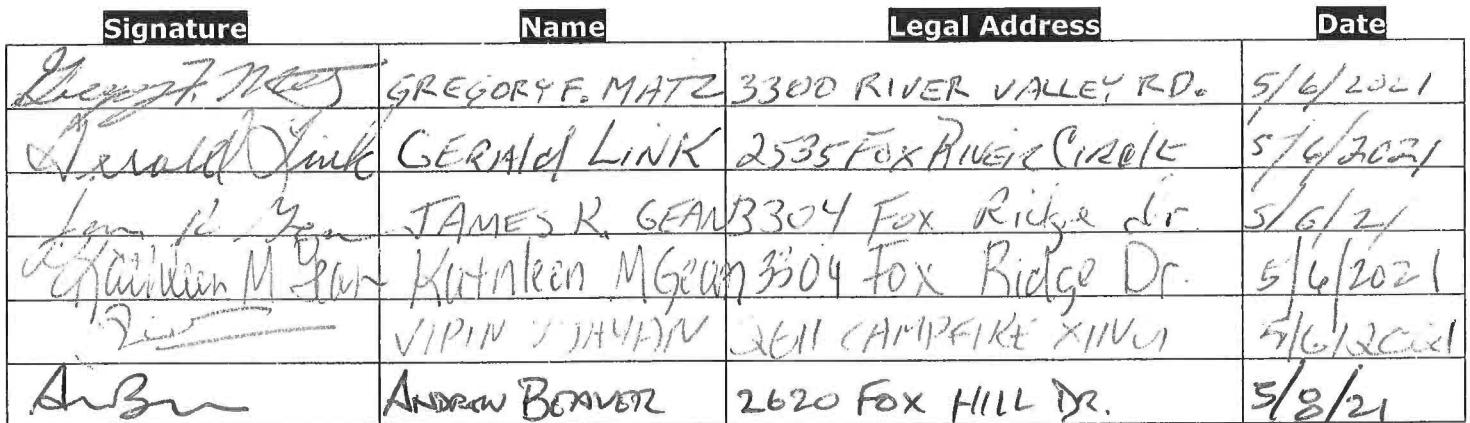 Signature Name Legal Address Date
Gregory F. Matz GREGORY F. MATZ 3300 RIVER VALLEY RD. 5/6/2021
Gerald Link GERAld LINK 2535 FOX RIVER CIRClE 5/6/2021
JAMES K. GEAN 3304 Fox Ridge dr. 5/6/21
Kathleen M Gean Kathleen M Gean 3304 Fox Ridge Dr. 5/6/2021
VIPIN 2611 CAMPFIRE 5/6/2021
ANDREW BEAVER 2620 FOX HILL DR. 5/8/21